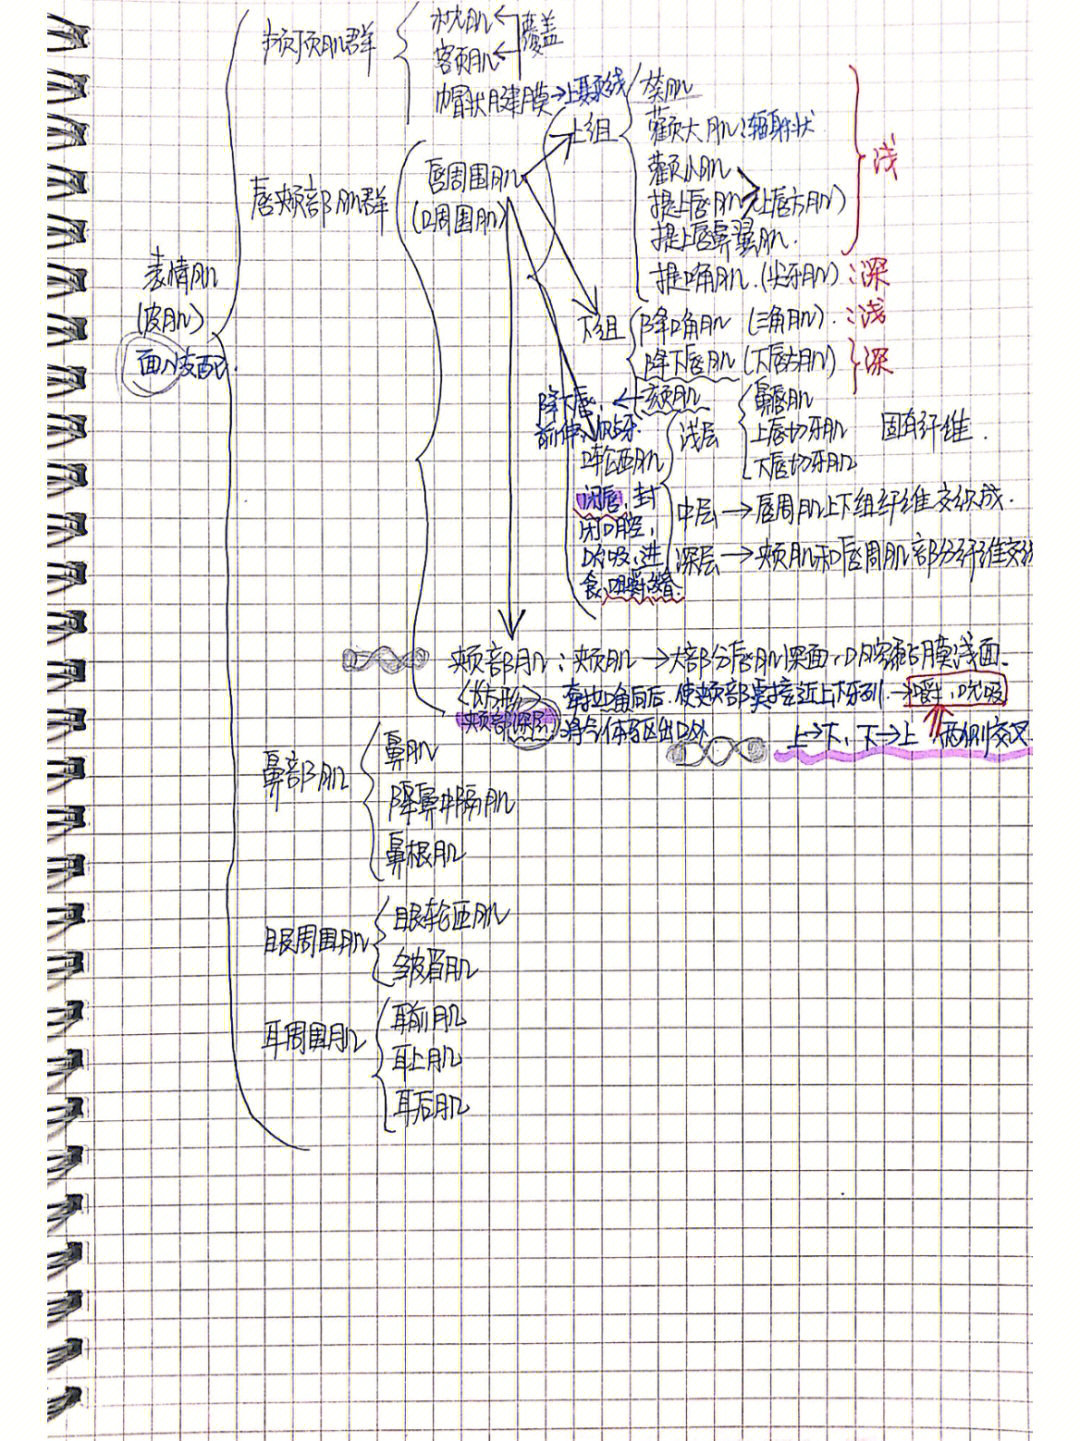 表情肌
(皮肌)
面N支配
颅顶肌群
枕肌
额肌
覆盖
帽状腱膜→上颞线
唇颊部肌群
唇周围肌
(口周围肌)
上组
笑肌
颧大肌:辐射状
颧小肌
提上唇肌 (上唇方肌)
提上唇鼻翼肌.
浅
提口角肌.(尖牙肌):深
下组
降口角肌 (三角肌).:浅
降下唇肌 (下唇方肌)
颏肌
深
降下唇,
前伸,
口轮匝肌
闭唇,封
闭口腔,
吹吸,进
食,咀嚼
浅层
鼻唇肌
上唇切牙肌
下唇切牙肌
固有纤维.
中层→唇周肌上下组纤维交织成.
深层→颊肌和唇周肌部分纤维交
颊部肌:颊肌→大部分唇肌深面,口腔黏膜浅面.
(长方形) 牵拉口角向后,使颊部更接近上下牙列→嚼,吹吸
颊部深层 :将气体驱出口外
上→下,下→上 两侧交叉
鼻部肌
鼻肌
降鼻中隔肌
鼻根肌
眼周围肌
眼轮匝肌
皱眉肌
耳周围肌
耳前肌
耳上肌
耳后肌